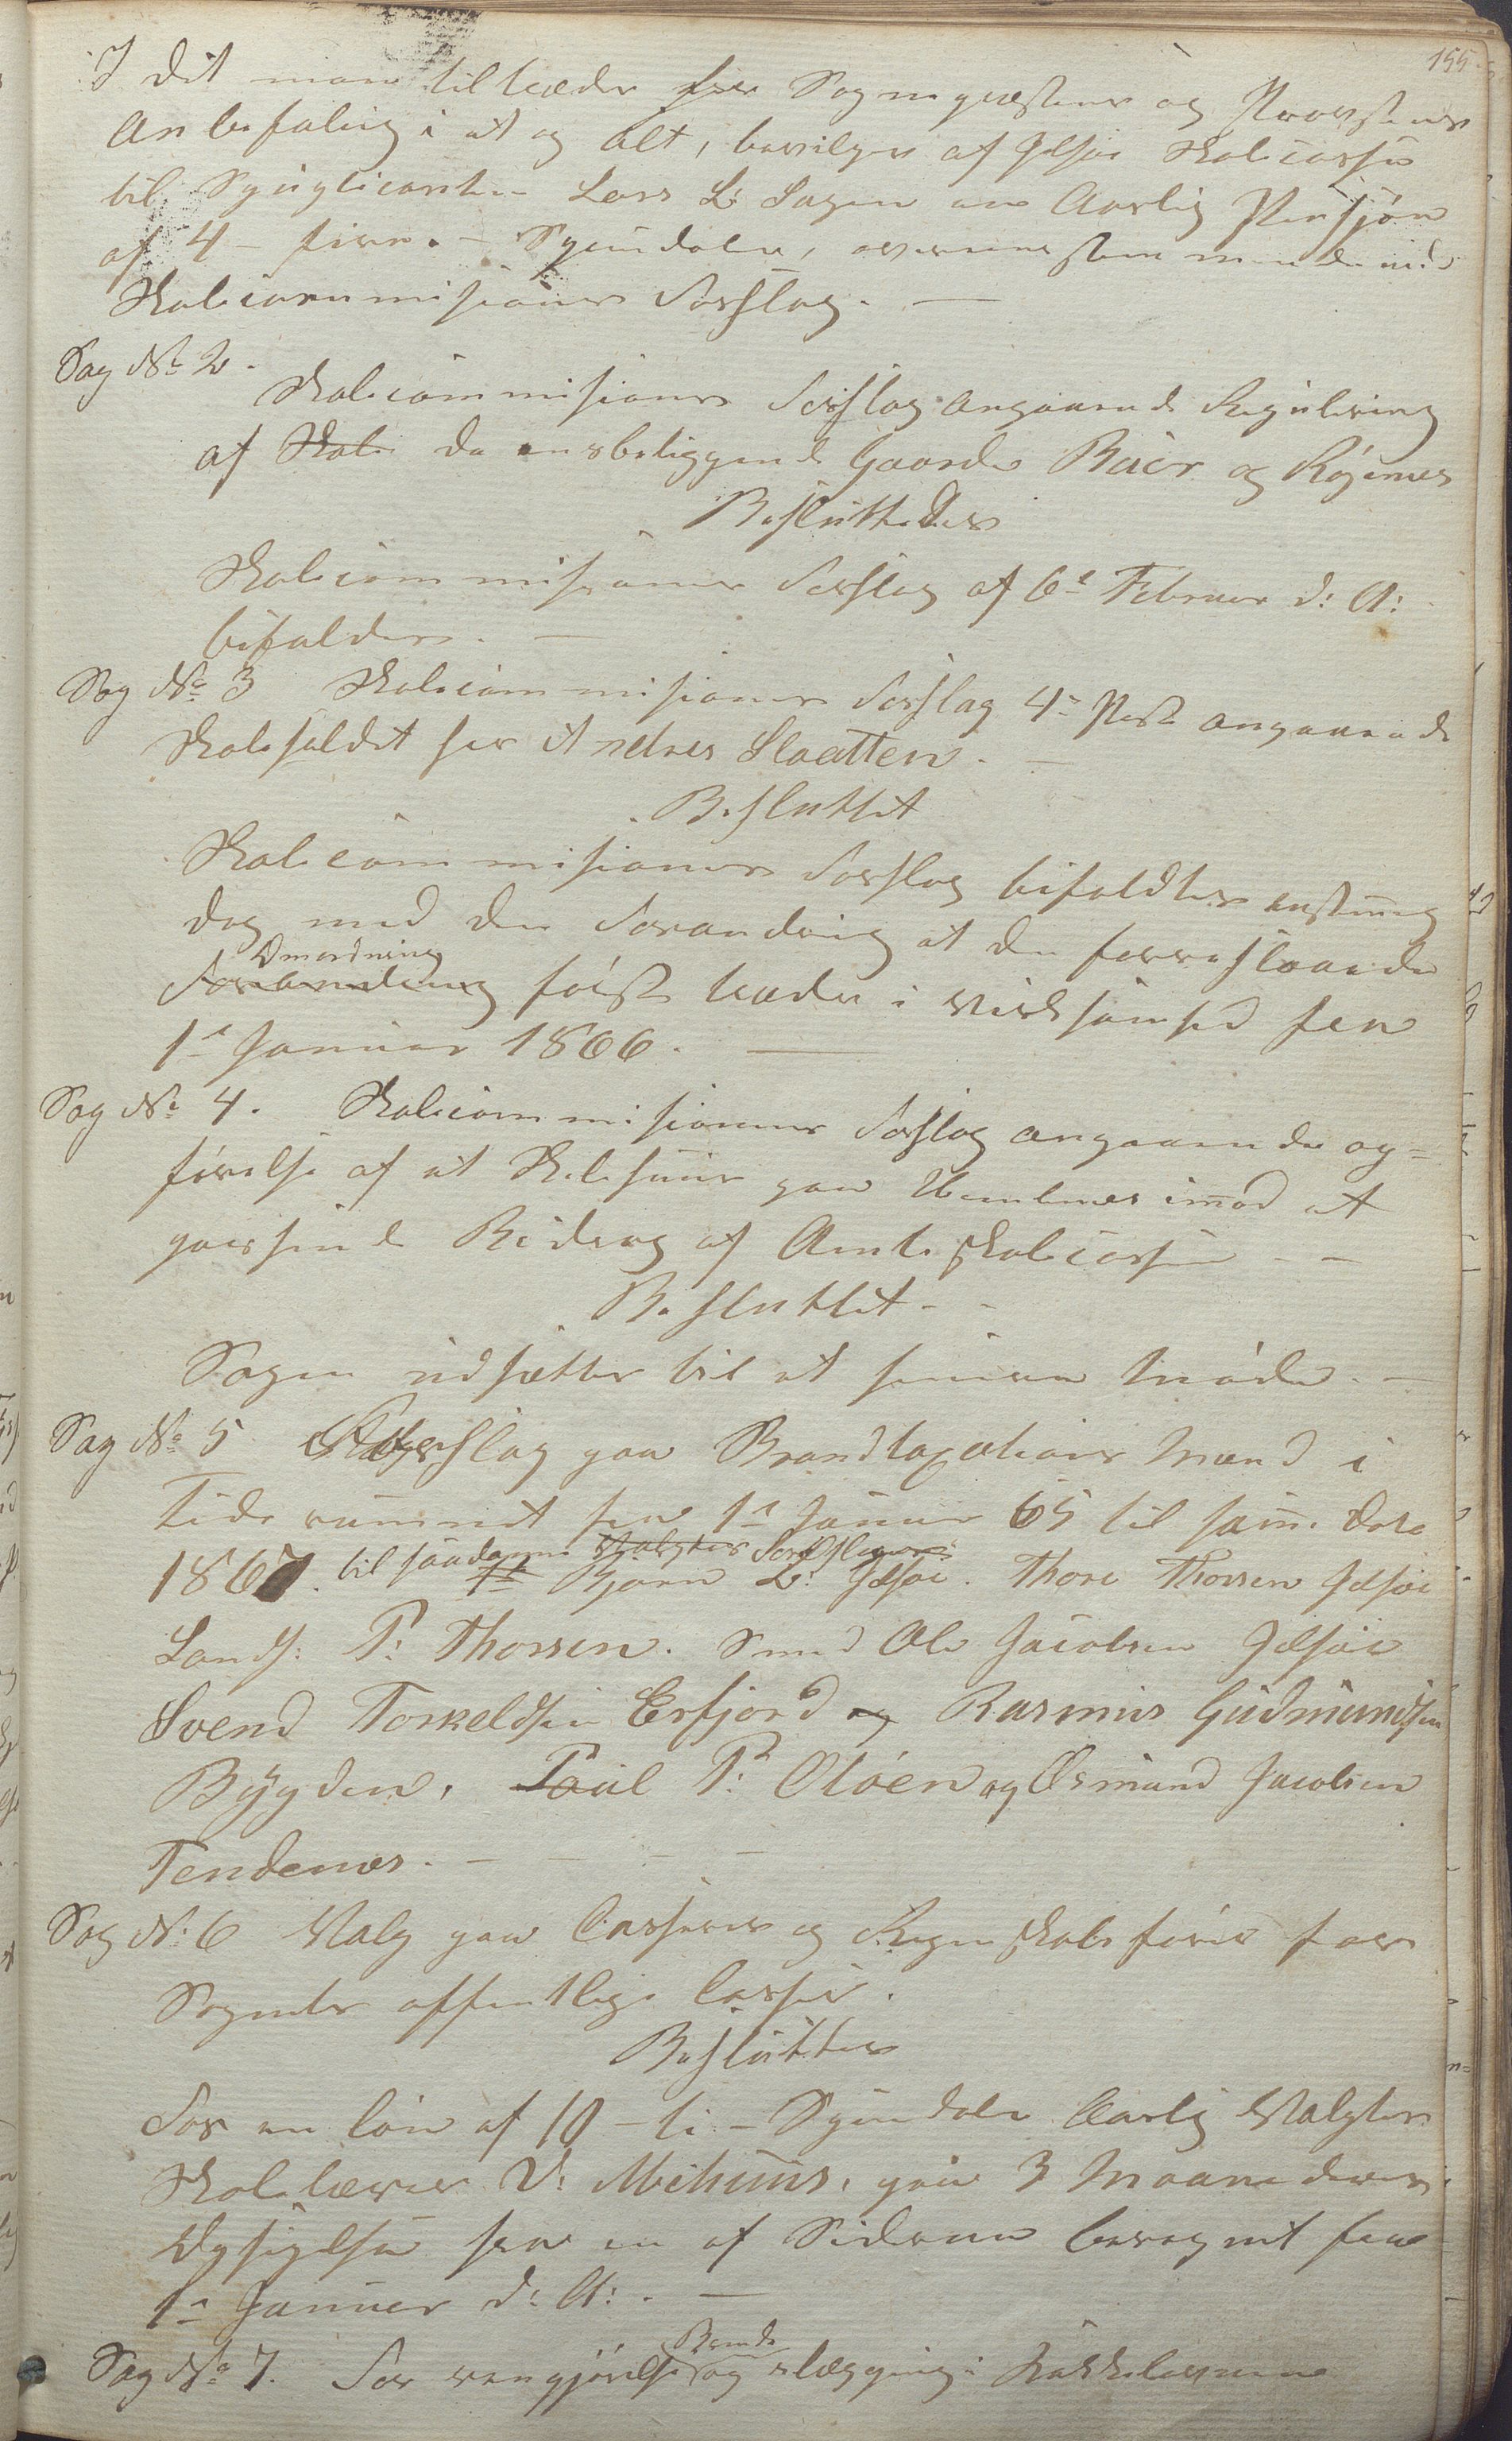 155
I det man tiltræder Sognepræstens og Provstens
Anbefaling i et og alt, bevilges af Jelsøe Skolecasse
til Supplicanten Lars L: Sagen en Aarlig Pensjon
af 4 – fire – Speciedaler, overensstemmende med
Skolecommisionens Forslag. –
Sag No 2.
Skolecommisionens Forslag angaaende Regulering
af Skole de ensbeliggende Gaarde Buer og Røgenes
Besluttedes
Skolecommisionens Forslag af 6te Februar d: A:
bifaldes. –
Sag No 3 Skolecommisionens Forslag 4de Post angaaende
Skoleholdet hos Andreas Slaatten. –
Besluttet
Skolecommisionens Forslag bifaldtes enstemmig
dog med den Forandring at den foreslaaede
Omordning
Forandring først træder i Virksomhed fra
1ste Januar 1866. –
Sag No 4. Skolecommisionens Forslag angaaende op=
førelse af et Skolehuus paa Hembnes imod et
passende Bidrag af Amtsskolecassen – –
Besluttet – –
Sagen udsættes til et senere Møde. –
Sag No 5 Forslag paa Brandtaxations Mænd i
Tidsrummet fra 1ste Januar 65 til samme Dato
til saadanne Valgtes Forslaaes:
1867. Bjørn L: Jelsøe. Thore Thorsen Jelsøe
Landh: P: Thorsen. Smed Ole Jacobsen Jelsøe
Svend Torkeldsen Erfjord og Rasmus Gudmundsen
Bygden, Poul P: Oløen og Osmund Jacobsen
Tendenes. – – – –
Sag No 6 Valg paa Casserer og Regnskabsfører for
Sognets offentlige Casser.
Besluttes
For en løn af 10 – ti – Speciedaler Aarlig Valgtes
Skolelærer D: Mehuus, paa 3 Maaneders
Opsigelse fra en af Siderne beregnet fra
1ste Januar d: A: . –
Brænde
Sag No 7. For rengjørelse og ilægging i Kakkelovnene